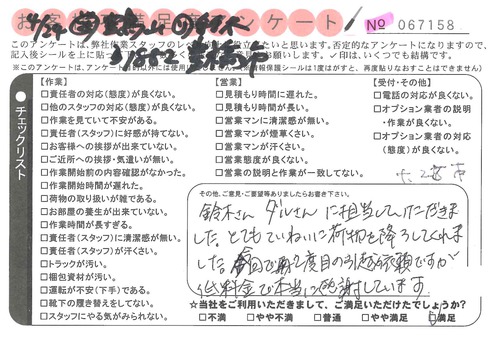 お客さま満足度アンケート
No 067158
4/24
このアンケートは、弊社作業スタッフのレベル
と思います。否定的なアンケートになりますので、
記入後シールを上に貼って
お願いします。✓印は、いくつでも結構です。
チェックリスト
【作業】
□責任者の対応(態度)が良くない。
□他のスタッフの対応(態度)が良くない。
□作業を見ていて不安がある。
□責任者(スタッフ)に好感が持てない。
□お客様への挨拶が出来ていない。
□ご近所への挨拶・気遣いが無い。
□作業開始前の内容確認がなかった。
□作業開始時間が遅れた。
□荷物の取り扱いが雑である。
□お部屋の養生が出来ていない。
□作業時間が長すぎる。
□責任者(スタッフ)に清潔感が無い。
□責任者(スタッフ)が汗くさい。
□トラックが汚い。
□梱包資材が汚い。
□運転が不安(下手)である。
□靴下の履き替えをしてない。
□スタッフにやる気がみられない。
【営業】
□見積もり時間に遅れた。
□見積もり時間が長い。
□営業マンに清潔感が無い。
□営業マンが煙草くさい。
□営業マンが汗くさい。
□営業態度が良くない。
□営業の説明と作業が一致してない。
【受付・その他】
□電話の対応が良くない。
□オプション業者の説明
・作業が良くない。
□オプション業者の対応
(態度)が良くない。
その他、ご意見・ご要望等ありましたらお書き下さい。
鈴木さん ダルさんに担当していただきま
した。とてもていねいに荷物を降ろしてくれま
した。今回で2度目の引越依頼ですが
低料金で本当に感謝しています
☆当社をご利用いただきまして、ご満足いただけたでしょうか?
□不満 □やや不満 □普通 □やや満足 ☑満足